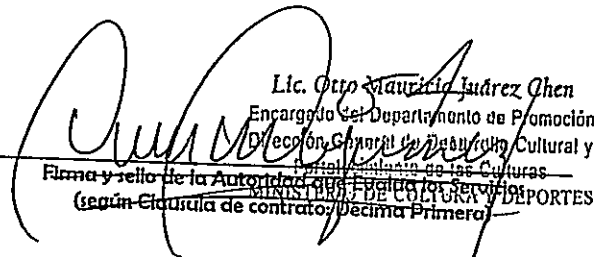 Lic. Otto Mauricio Juárez Chen
Encargado del Departamento de Promoción
Dirección General de Desarrollo Cultural y
Fortalecimiento de las Culturas
MINISTERIO DE CULTURA Y DEPORTES
Firma y sello de la Autoridad que Evalúa los Servicios
(según Clausula de contrato: Décima Primera)